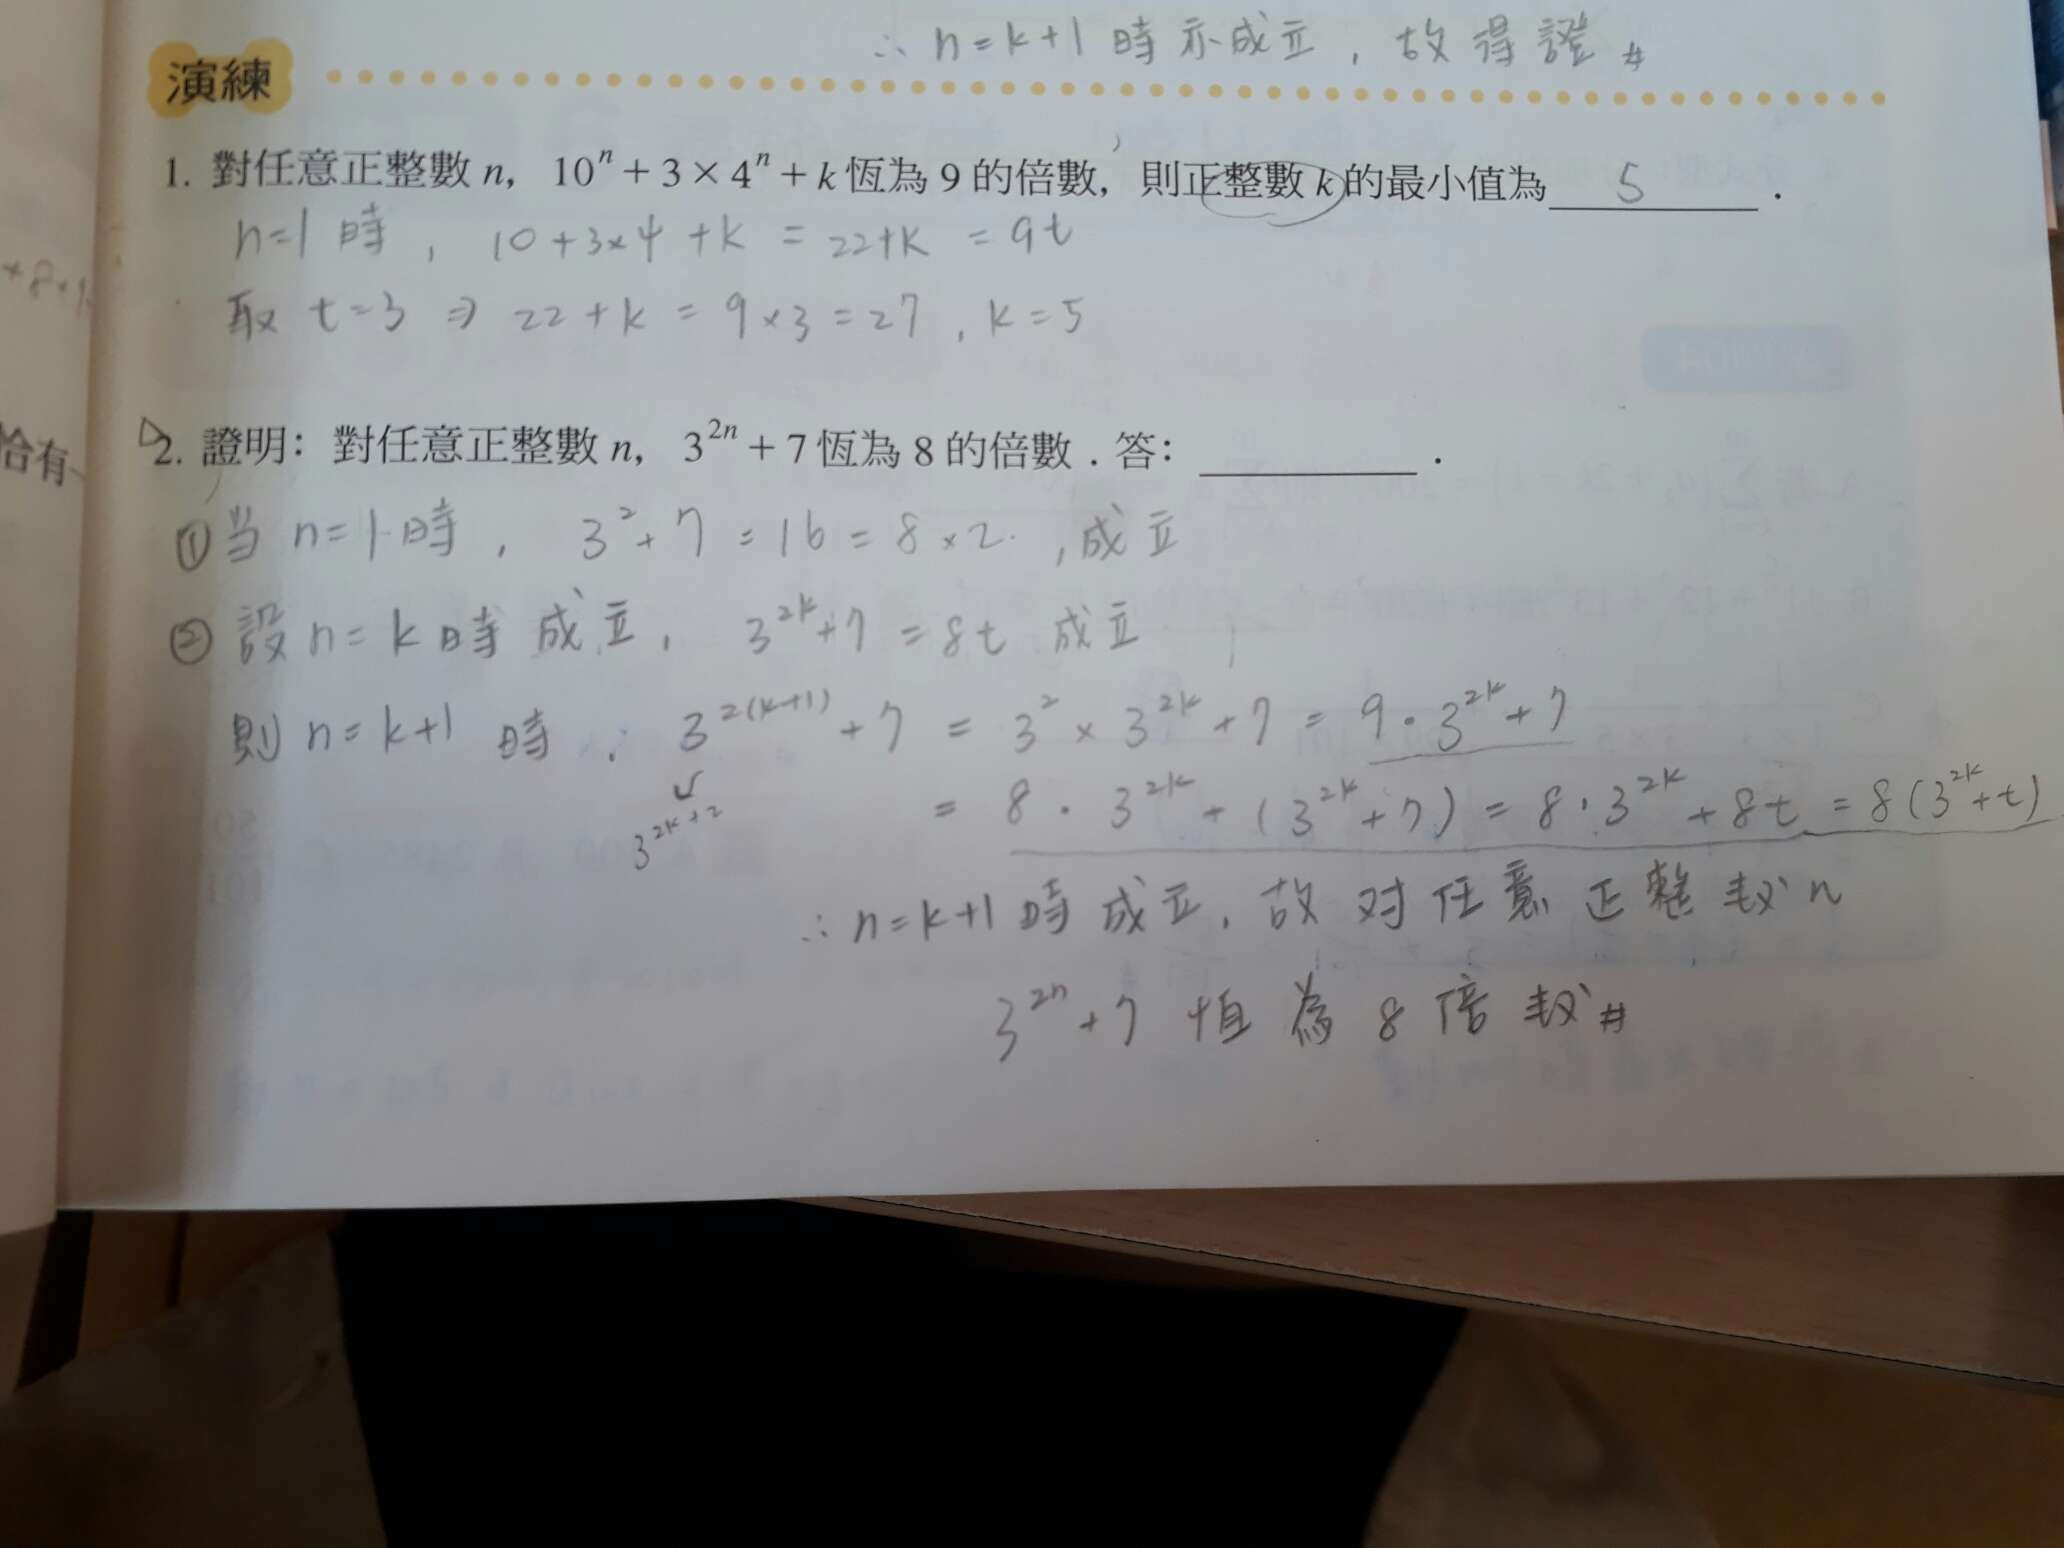 ∴ n=k+1 時亦成立, 故得證 #
演練
1. 對任意正整數 n, 10ⁿ + 3 × 4ⁿ + k 恆為 9 的倍數, 則正整數 k 的最小值為 5 .
n=1 時, 10+3×4+k = 22+k = 9t
取 t=3 ⇒ 22+k = 9×3 = 27, k=5
恰有
2. 證明: 對任意正整數 n, 3²ⁿ + 7 恆為 8 的倍數. 答: ________ .
① 当 n=1 時, 3²+7 = 16 = 8×2 , 成立
② 設 n=k 時成立, 3²ᵏ+7 = 8t 成立
則 n=k+1 時, 3²⁽ᵏ⁺¹⁾+7 = 3² × 3²ᵏ+7 = 9·3²ᵏ+7
3²ᵏ⁺²
= 8·3²ᵏ+(3²ᵏ+7) = 8·3²ᵏ+8t = 8(3²ᵏ+t)
∴ n=k+1 時成立, 故对任意正整数 n
3²ⁿ+7 恒為 8 倍数 #